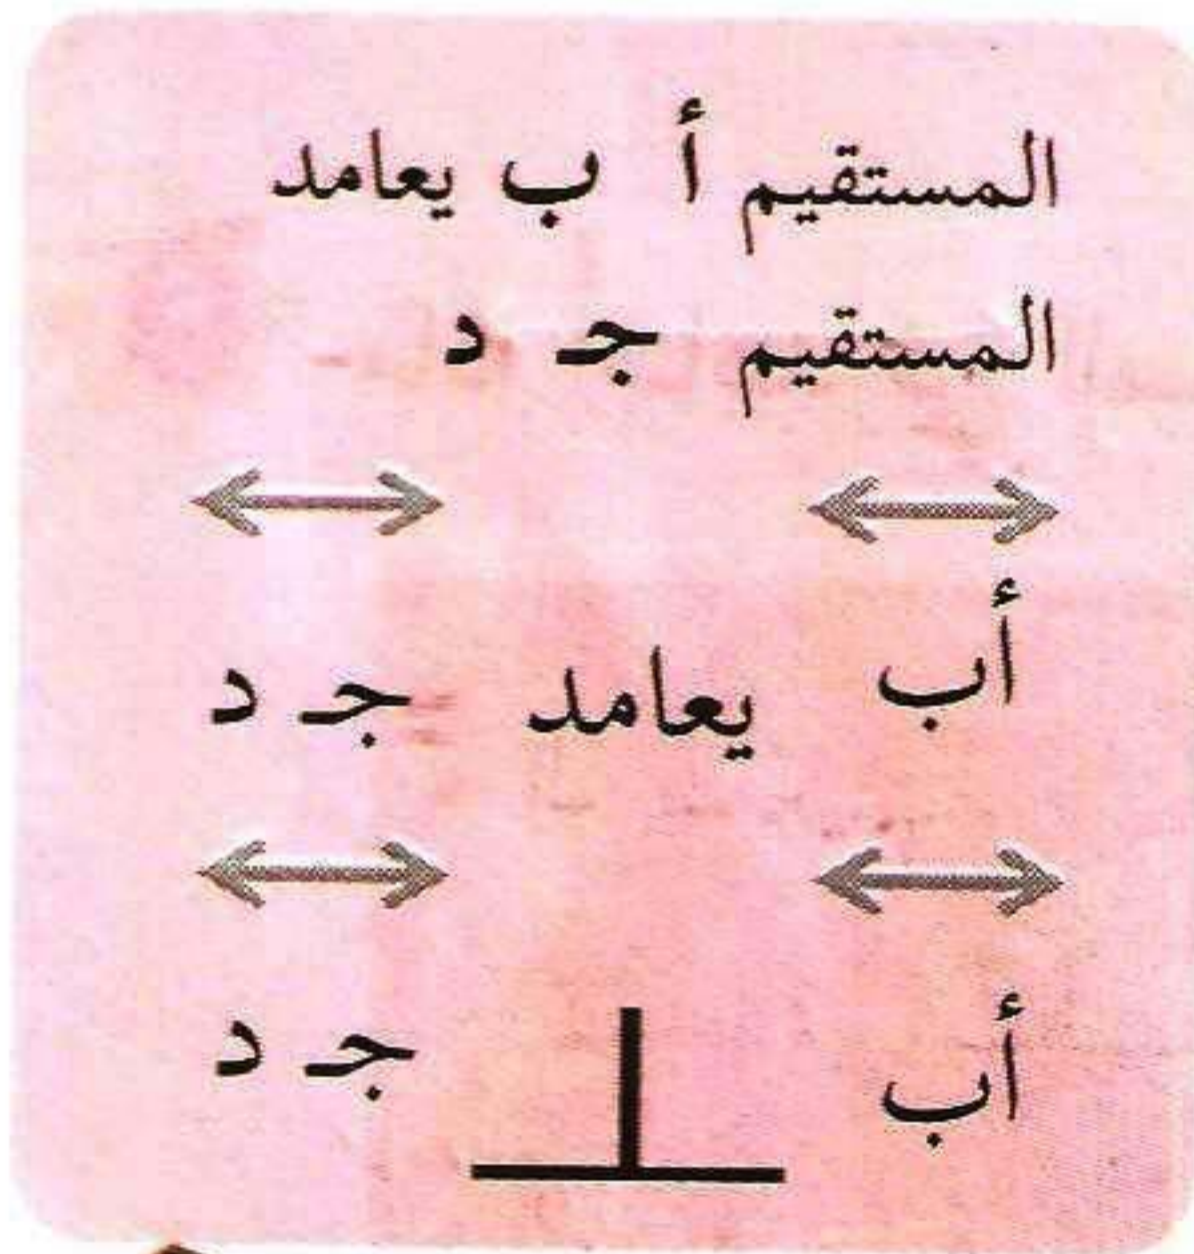 المستقيم أ ب يعامد
المستقيم جـ د
أب يعامد جـ د
أب ⊥ جـ د